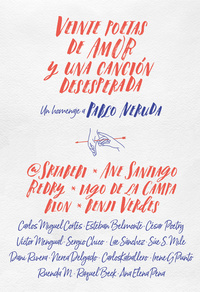 VEINTE POETAS
DE AMOR
Y UNA CANCIÓN
DESESPERADA
Un homenaje a PABLO NERUDA
@SRTABEBI * ANE SANTIAGO
REDRY * IAGO DE LA CAMPA
RION * BENJI VERDES
Carlos Miguel Cortés · Esteban Belmonte · César Poetry
Víctor Mengual · Sergio Chico · Leo Sánchez · Sue S. Mile
Dani Rivera · Nerea Delgado · Carlos Kaballero · Irene G Punto
Ruenda M · Raquel Beck · Ana Elena Pena